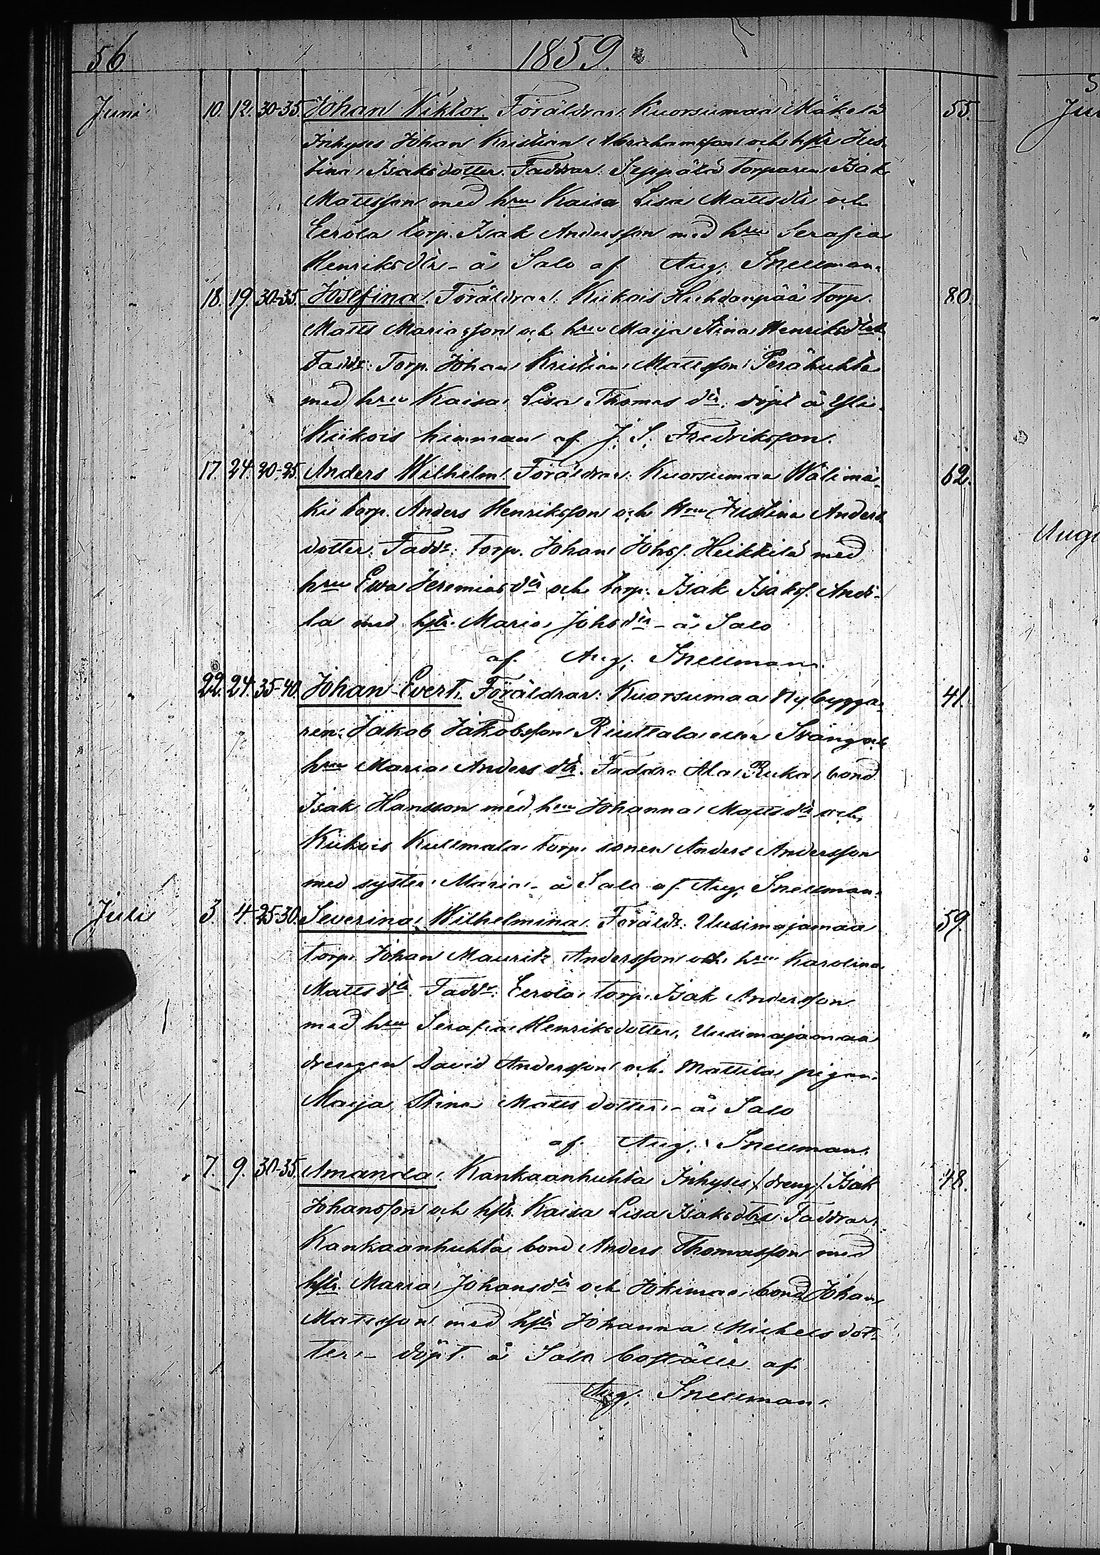 56 1859.
Juni 10. 12. 30-35. Johan Viktor. Föräldrar: Kuorsumaa Mäkelä 55.
Inhyses Johan Kristian Abrahamsson och hstr Jus-
tina Isaksdotter. Faddrar: Seppälä torparen Isak
Mattsson med hru Kaisa Lisa Mattsdtr och
Eerola torp. Isak Andersson med hru Serafia
Henriksdtr - å Salo af Aug. Snellman.
18. 19. 30-35. Josefina. Föräldrar: Kiikois Huhdanpää torp. 80.
Matts Mariasson och hru Maija Stina Henriksdtr
Faddr: Torp. Johan Kristian Mattsson Perähuhta
med hru Kaisa Lisa Thomas dtr. döpt å Yli-
Kiikois hemman af J. S. Fredriksson.
17. 24. 30-35. Anders Wilhelm. Föräldrar: Kuorsumaa Wälimä- 62.
ki torp. Anders Henriksson och Hru Justina Anders
dotter. Faddr: torp. Johan Johsf. Heikkilä med
hru Ewa Jeremias dtr och torp. Isak Isaksf. Andi-
la med hstr. Maria Johs dtr - å Salo
af Aug. Snellman.
22. 24. 35-40. Johan Evert. Föräldrar: Kuorsumaa Nybygga- 41.
ren Jakob Jakobsson Riuttala eller Svång och
hru Maria Anders dtr. Faddr: Ala Ruka bond
Isak Hansson med hru Johanna Matts dtr och
Kiikois Kullmala torp. sonen Anders Andersson
med syster Maria - å Salo af Aug. Snellman.
Juli 3. 4. 25-30. Severina Wilhelmina. Föräldr: Uusimajamaa 59.
torp. Johan Maurits Andersson och hru Karolina
Matts dtr. Faddr: Eerola torp. Isak Andersson
med hru Serafia Henriksdotter, Uusimajamaa
drengen David Andersson och Mattila pigan
Maija Stina Matts dotter - å Salo
af Aug. Snellman.
7. 9. 30-35. Amanda. Kankaanhuhta Inhyses /dreng/ Isak 48.
Johansson och hstr. Kaisa Lisa Isaksdtr Faddrar:
Kankaanhuhta bond Anders Thomasson med
hstr. Maria Johansdtr och bond Johan
Mattsson med hstr Johanna Michelsdot-
ter - döpt å Salo boställe af
Aug. Snellman.